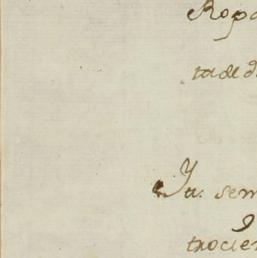 Ropa
ta de d
Ya. sem
trocien